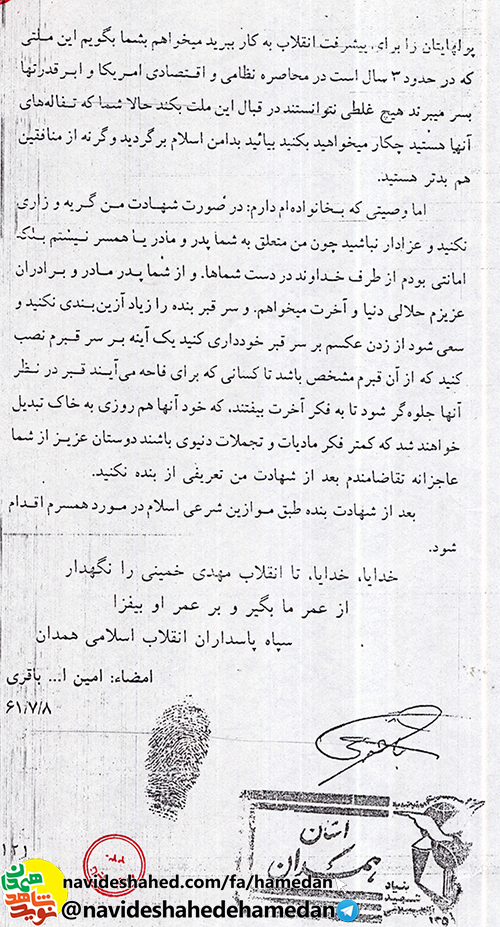 پولهایتان را برای پیشرفت انقلاب به کار ببرید میخواهم بشما بگویم این ملتی
که در حدود ۳ سال است در محاصره نظامی و اقتصادی امریکا و ابرقدرتها
بسر میبرند هیچ غلطی نتوانستند در قبال این ملت بکند حالا شما که تفاله‌های
آنها هستید چکار میخواهید بکنید بیائید بدامن اسلام برگردید وگرنه از منافقین
هم بدتر هستید.
اما وصیتی که بخانواده‌ام دارم: در صورت شهادت من گریه و زاری
نکنید و عزادار نباشید چون من متعلق به شما پدر و مادر یا همسر نیستم بلکه
امانتی بودم از طرف خداوند در دست شماها. و از شما پدر مادر و برادران
عزیزم حلالی دنیا و آخرت میخواهم. و سر قبر بنده را زیاد آزین‌بندی نکنید و
سعی شود از زدن عکسم بر سر قبر خودداری کنید یک آینه بر سر قبرم نصب
کنید که از آن قبرم مشخص باشد تا کسانی که برای فاحه می‌آیند قبر در نظر
آنها جلوه‌گر شود تا به فکر آخرت بیفتند، که خود آنها هم روزی به خاک تبدیل
خواهند شد که کمتر فکر مادیات و تجملات دنیوی باشند دوستان عزیز از شما
عاجزانه تقاضامندم بعد از شهادت من تعریفی از بنده نکنید.
بعد از شهادت بنده طبق موازین شرعی اسلام در مورد همسرم اقدام
شود.
خدایا، خدایا، تا انقلاب مهدی خمینی را نگهدار
از عمر ما بگیر و بر عمر او بیفزا
سپاه پاسداران انقلاب اسلامی همدان
امضاء: امین ا... باقری
۶۱/۷/۸
استان
همدان
بنیاد
شهید
۱۳۵
۱۲۱
نوید
شاهد
همدان
navideshahed.com/fa/hamedan
@navideshahedehamedan